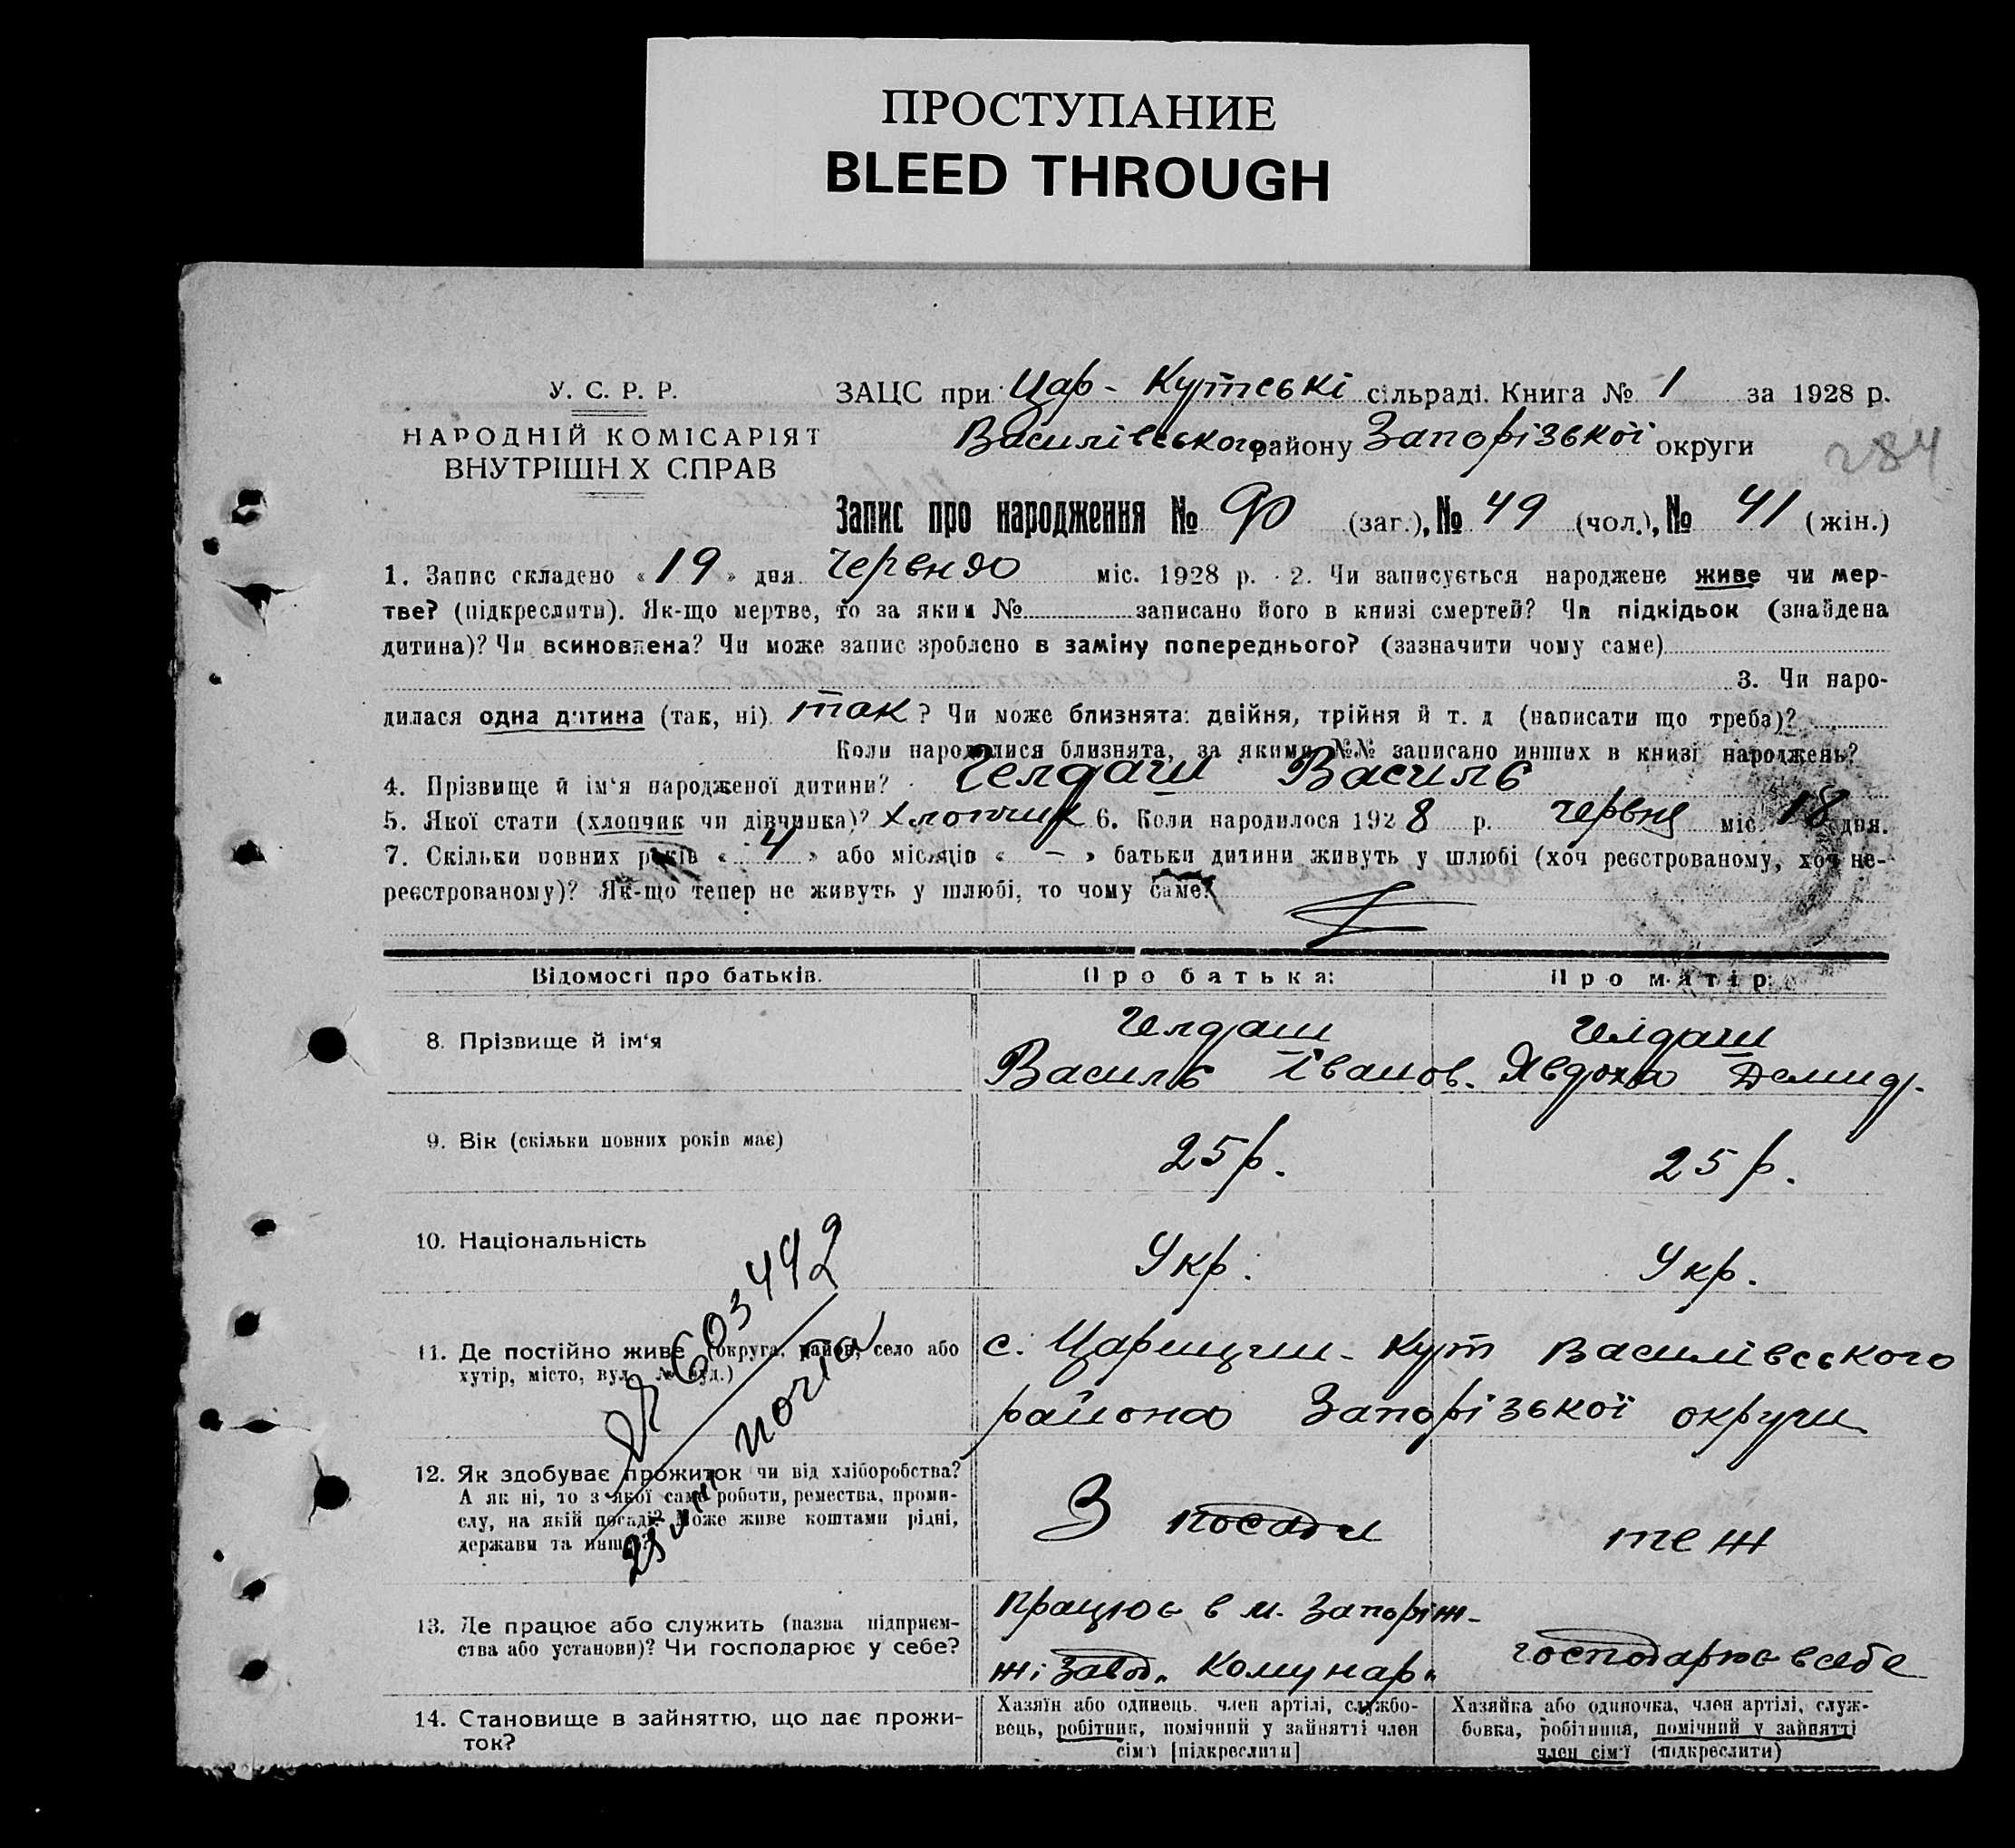 ПРОСТУПАНИЕ
BLEED THROUGH
У. С. Р. Р.
НАРОДНІЙ КОМІСАРІЯТ
ВНУТРІШН Х СПРАВ
ЗАЦС при Цар - Кутські сільраді. Книга № 1 за 1928 р.
Василівського району Запорізької округи
284
Запис про народження № 90 (заг.), № 49 (чол.), № 41 (жін.)
1. Запис складено « 19 » дня червня міс. 1928 р. 2. Чи записується народжене живе чи мер-
тве? (підкреслити). Як-що мертве, то за яким № записано його в книзі смертей? Чи підкідьок (знайдена
дитина)? Чи всиновлена? Чи може запис зроблено в заміну попереднього? (зазначити чому саме)
3. Чи наро-
дилася одна дитина (так, ні) так ? Чи може близнята: двійня, трійня й т. д (написати що треба)?
Коли народилися близнята, за якими №№ записано инших в книзі народжень?
4. Прізвище й ім‘я народженої дитини? Гелдаш Василь
5. Якої стати (хлопчик чи дівчинка)? хлопчик 6. Коли народилося 1928 р. червня міс. 18 дня.
7. Скільки повних років « 4 » або місяців « – » батьки дитини живуть у шлюбі (хоч реєстрованому, хоч не-
реєстрованому)? Як-що тепер не живуть у шлюбі, то чому саме?
Відомості про батьків. Про батька: Про матір:
8. Прізвище й ім‘я
Гелдаш Гелдаш
Василь Іванов. Явдоха Демид.
9. Вік (скільки повних років має) 25 р. 25 р.
10. Національність Укр. Укр.
11. Де постійно живе (округа, район, село або
хутір, місто, вул. № буд.)
с. Царицин - Кут Василівського
района Запорізької округи
603442
12. Як здобуває прожиток чи від хліборобства?
А як ні, то з якої саме роботи, ремества, проми-
слу, на якій посаді? Може живе коштами рідні,
держави та инше?
З посади теж
13. Де працює або служить (назва підприєм-
ства або установи)? Чи господарює у себе?
працює в м. Запоріж-
жі завод „Комунар“ господарює в себе
14. Становище в зайняттю, що дає прожи-
ток?
Хазяїн або одинець, член артілі, службо-
вець, робітник, помічний у зайнятті член
сім‘ї [підкреслити]
Хазяйка або одиночка, член артілі, служ-
бовка, робітниця, помічний у зайнятті
член сім‘ї (підкреслити)